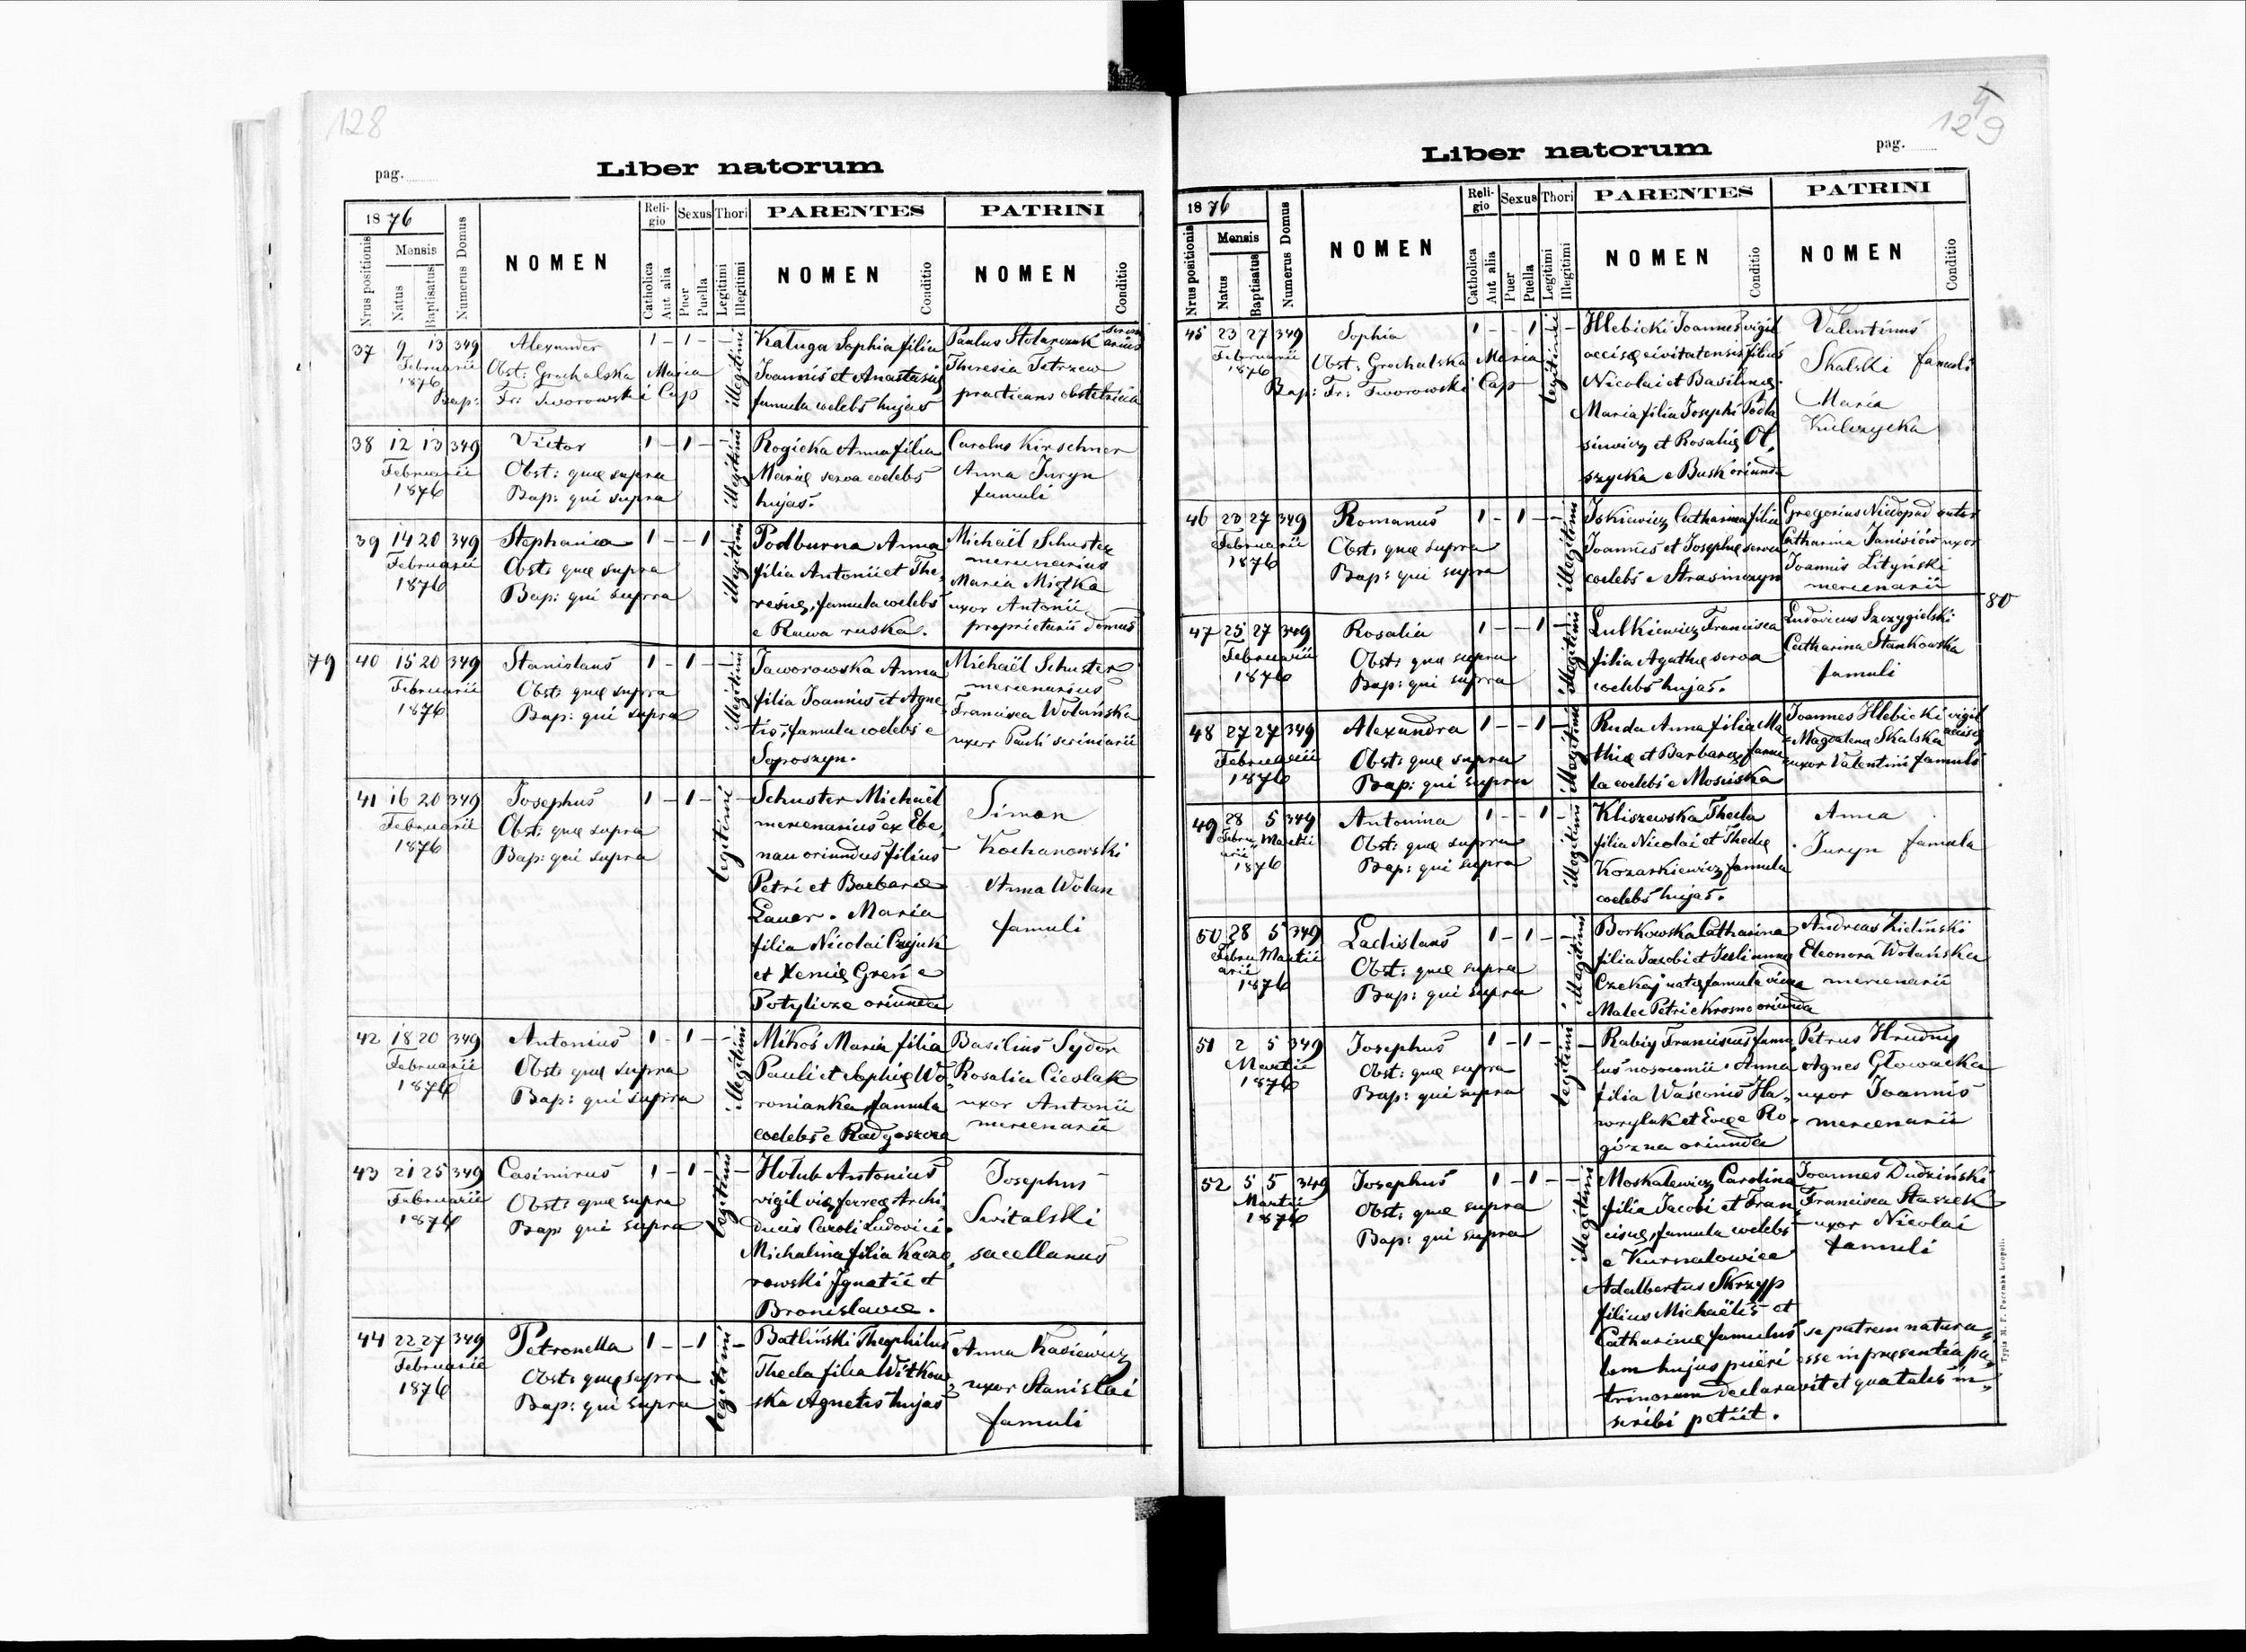 128
pag.
Liber natorum
1876
Mensis
Nrus positionis
Natus
Baptisatus
Numerus Domus
NOMEN
Religio
Catholica
Aut alia
Sexus
Puer
Puella
Thori
Legitimi
Illegitimi
PARENTES
NOMEN
Conditio
PATRINI
NOMEN
Conditio
37 9 13 349 Alexander 1 - 1 - - illegitimi
Februarii
1876
Obst: Grochalska Maria
Bap: Fr: Tworowski Cap
Kaługa Sophia filia
Joannis et Anastasię
famula coelebs hujas
Paulus Stolarczuk
Theresia Tetrzew
practicans obstetricia
38 12 13 349 Victor 1 - 1 - - illegitimi
Februarii
1876
Obst: quę supra
Bap: qui supra
Rogicka Anna filia
Marię serva coelebs
hujas.
Carolus Kirschner
Anna Juryn
famuli
39 14 20 349 Stephania 1 - - 1 - illegitimi
Februarii
1876
Obst: quę supra
Bap: qui supra
Podburna Anna
filia Antonii et The-
resię, famula coelebs
e Rawa ruska.
Michaël Schuster
mercenarius
Maria Miętka
uxor Antonii
proprietarii domus
79
40 15 20 349 Stanislaus 1 - 1 - - illegitimi
Februarii
1876
Obst: quę supra
Bap: qui supra
Jaworowska Anna
filia Joannis et Agne-
tis, famula coelebs e
Soposzyn.
Michaël Schuster
mercenarius
Francisca Wolańska
uxor Pauli scriniarii
41 16 20 349 Josephus 1 - 1 - legitimi -
Februarii
1876
Obst: quę supra
Bap: qui supra
Schuster Michaël
mercenarius ex Ebe-
nau oriundus filius
Petri et Barbarae
Lauer. Maria
filia Nicolai Czyjuk
et Xenię Greń e
Potylicze oriunda
Simon
Kochanowski
Anna Wolan
famuli
42 18 20 349 Antonius 1 - 1 - - illegitimi
Februarii
1876
Obst: quę supra
Bap: qui supra
Mikoś Maria filia
Pauli et Sophię Wo-
ronianka famula
coelebs e Radgoszcza
Basilius Sydor
Rosalia Cieslak
uxor Antonii
mercenarii
43 21 25 349 Casimirus 1 - 1 - legitimi -
Februarii
1876
Obst: quę supra
Bap: qui supra
Hołub Antonius
vigil vię ferreę Archi-
ducis Caroli Ludovici.
Michalina filia Kacze-
rowski Ignatii et
Bronislavae.
Josephus
Switalski
sacellanus
44 22 27 349 Petronella 1 - - 1 legitimi -
Februarii
1876
Obst: quę supra
Bap: qui supra
Batliński Theophilus
Thecla filia Witkow-
ska Agnetis hujas
Anna Kasiewicz
uxor Stanislai
famuli
129
pag.
Liber natorum
1876
Mensis
Nrus positionis
Natus
Baptisatus
Numerus Domus
NOMEN
Religio
Catholica
Aut alia
Sexus
Puer
Puella
Thori
Legitimi
Illegitimi
PARENTES
NOMEN
Conditio
PATRINI
NOMEN
Conditio
45 23 27 349 Sophia 1 - - 1 legitimi -
Februarii
1876
Obst: Grochalska Maria
Bap: Fr: Tworowski Cap
Hlebicki Joannes vigil
accisę civitatensis filius
Nicolai et Basilię.
Maria filia Josephi Podla
siewicz et Rosalię Ol-
szycka e Busk oriunda
Valentinus
Skalski famuli
Maria
Kulczycka
46 23 27 349 Romanus 1 - 1 - - illegitimi
Februarii
1876
Obst: quę supra
Bap: qui supra
Iskiewicz Catharina filia
Joannis et Josephę serva
coelebs e Strasinczyn
Gregorius Niedopad sutor
Catharina Janisiów uxor
Joannis Lityński
mercenarii
80
47 25 27 349 Rosalia 1 - - 1 - illegitimi
Februarii
1876
Obst: quę supra
Bap: qui supra
Lutkiewicz Francisca
filia Agathę serva
coelebs hujas.
Ludovicus Szczygielski
Catharina Stankowska
famuli
48 27 27 349 Alexandra 1 - - 1 - illegitimi
Februarii
1876
Obst: quę supra
Bap: qui supra
Ruda Anna filia Ma-
thię et Barbarę famu-
la coelebs e Mosciska
Joannes Hlebicki vigil accisę
Magdalena Skalska
uxor Valentini famuli
49 28 5 349 Antonina 1 - - 1 - illegitimi
Februarii Martii
1876
Obst: quę supra
Bap: qui supra
Kliszewska Thecla
filia Nicolai et Theclę
Kozarkiewicz famula
coelebs hujas.
Anna
Juryn famula
50 28 5 349 Ladislaus 1 - 1 - - illegitimi
Februarii Martii
1876
Obst: quę supra
Bap: qui supra
Borkowska Catharina
filia Jacobi et Julianna
Czekaj natę famula vidua
Malec Petri e Krosno oriunda
Andreas Zieliński
Eleonora Wolańska
mercenarii
51 2 5 349 Josephus 1 - 1 - legitimi -
Martii
1876
Obst: quę supra
Bap: qui supra
Rabiy Franciscus famu-
lus nosocomii. Anna
filia Waśconis Ha-
wryluk et Evę e Ro-
gózna oriunda
Petrus Hrudniy
Agnes Głowacka
uxor Joannis
mercenarii
52 5 5 349 Josephus 1 - 1 - - illegitimi
Martii
1876
Obst: quę supra
Bap: qui supra
Moskalewicz Carolina
filia Jacobi et Fran-
ciscę, famula coelebs
e Kurnatowice
Adalbertus Skrzyp
filius Michaëlis et
Catharinę famulus se patrem natura-
lem hujus puëri esse in pręsentia pa-
trinorum declaravit et qua talis in-
scribi petiit.
Joannes Dudziński
Francisca Staszek
uxor Nicolai
famuli